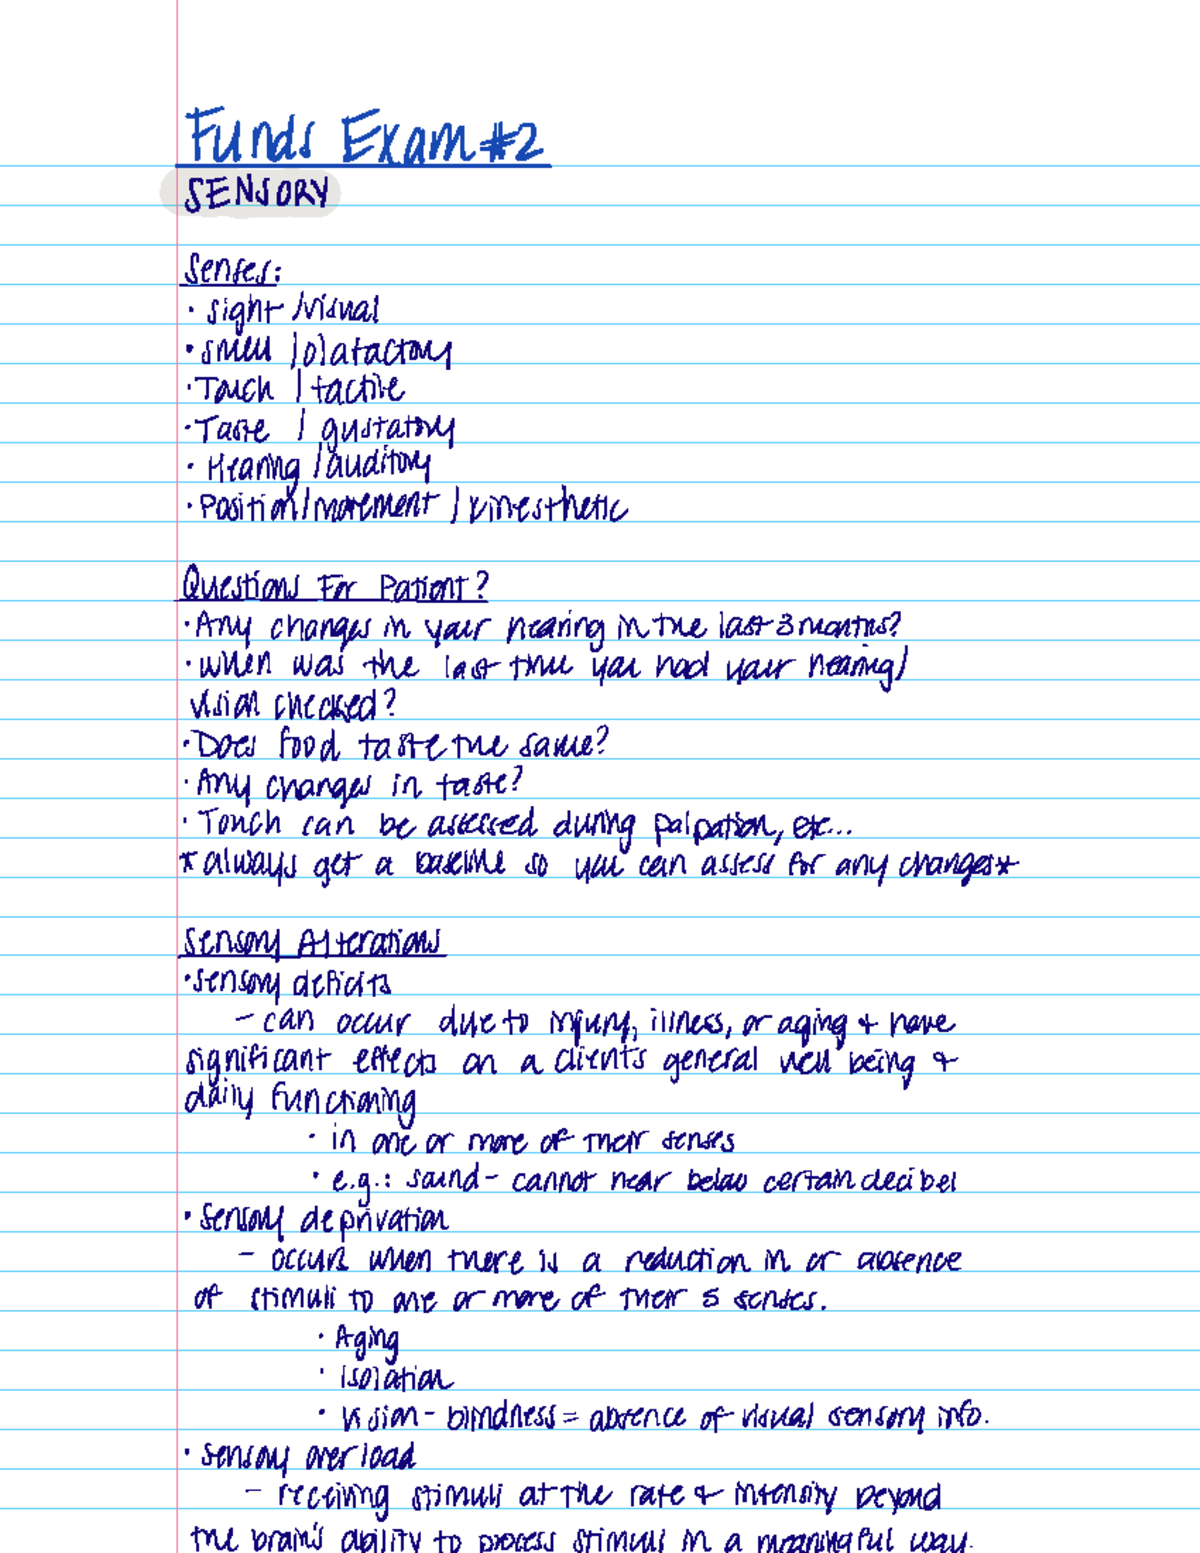 Funds Exam #2
SENSORY
Senses:
· Sight /visual
· Smell /olafactory
· Touch / tactile
· Taste / gustatory
· Hearing /auditory
· Position/movement / kinesthetic
Questions For Patient?
· Any changes in your hearing in the last 3 months?
· When was the last time you had your hearing/
vision checked?
· Does food taste the same?
· Any changes in taste?
· Touch can be assessed during palpation, etc...
* always get a baseline so you can assess for any changes*
Sensory Alterations
· Sensory deficits
- can occur due to injury, illness, or aging + have
significant effects on a clients general well being +
daily functioning
· in one or more of their senses
· e.g.: sound - cannot hear below certain decibel
· Sensory deprivation
- occurs when there is a reduction in or absence
of stimuli to one or more of their 5 senses.
· Aging
· Isolation
· Vision - blindness = absence of visual sensory info.
· Sensory overload
- receiving stimuli at the rate + intensity beyond
the brain's ability to process stimuli in a meaningful way.